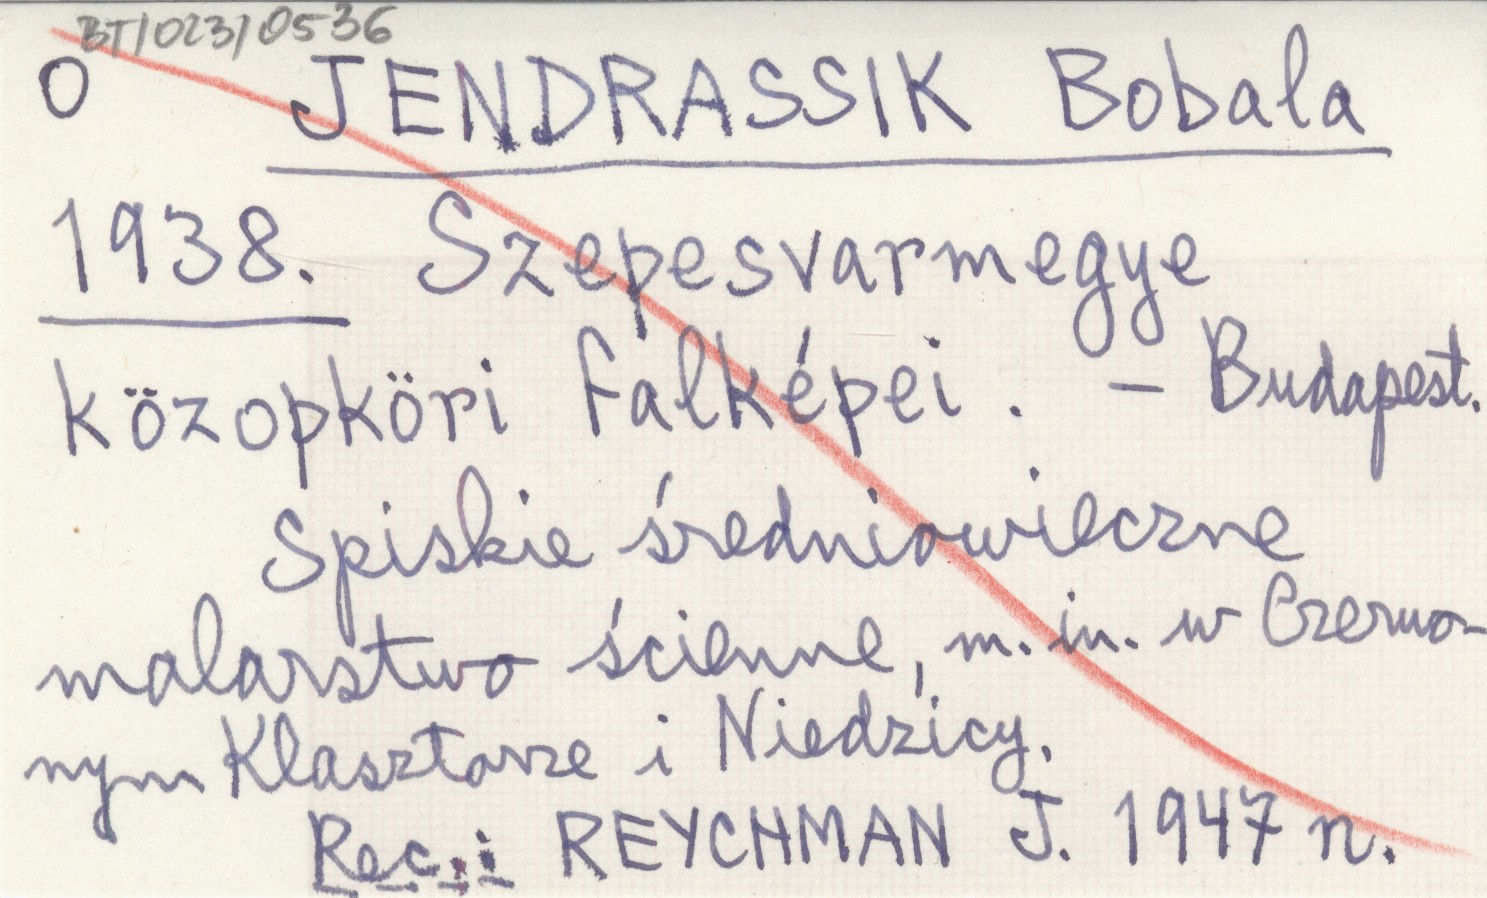 BT/023/0536
O JENDRASSIK Bobala
1938. Szepesvarmegye
közopköri falképei. - Budapest.
Spiskie średniowieczne
malarstwo ścienne, m. in. w Czerwo-
nym Klasztorze i Niedzicy.
Rec.: REYCHMAN J. 1947 n.